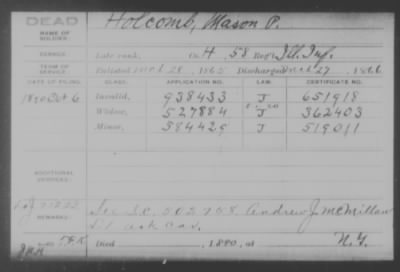 DEAD
NAME OF SOLDIER: Holcomb, Mason P.
SERVICE: Late rank, Co. H, 58 Reg't Ill. Inf.
TERM OF SERVICE: Enlisted 28, 1865 Discharged 27, 1866
DATE OF FILING. CLASS. APPLICATION NO. LAW. CERTIFICATE NO.
Oct 6 Invalid, 938433 J 651918
Widow, 527884 J 362403
Minor, 584429 J 519011
ADDITIONAL SERVICES:
REMARKS: 502708 Andrew J. McMillan
Cav.
Died , 1890, at